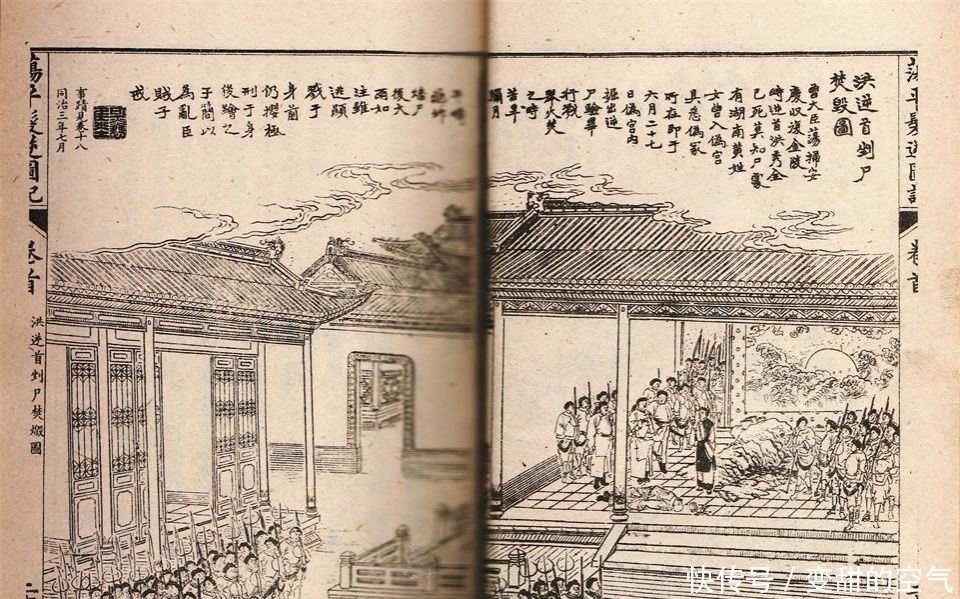 蕩平髮逆圖記
卷首
洪逆首剉尸
焚毀圖
曾大臣蕩掃安
慶收復金陵
時逆首洪秀全
已死莫知尸處
有湖南黄姓
女曾入偽宮
具悉偽冢
所在即于
六月二十七
日偽宮内
掘出逆
尸驗畢
行戮
舉火焚
之時
苦旱
彌月
尸
後大
雨如
注雖
逃顯
戮于
身前
仍攖極
刑于身
後繪之
于簡以
為亂臣
賊子
戒
事蹟見卷十八
同治三年七月
蕩平髮逆圖記
卷首
洪逆首剉尸焚燬圖
快传号 / 变甜的空气